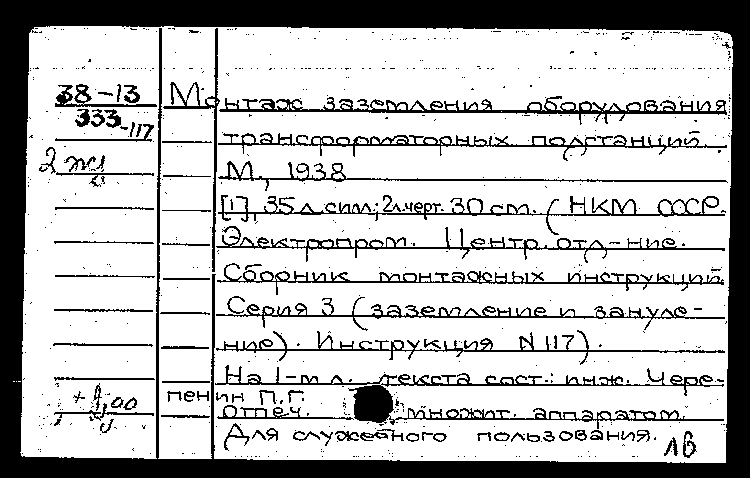 38-13
333-117
2 жл
Монтаж заземления оборудования
трансформаторных подстанций.
М., 1938
[1], 35 л. с илл.; 2 л. черт. 30 см. (НКМ СССР.
Электропром. Центр. отд-ние.
Сборник монтажных инструкций.
Серия 3 (заземление и зануле-
ние). Инструкция N 117).
На 1-м л. текста сост.: инж. Чере-
пенин П.Г.
отпеч. множит. аппаратом.
Для служебного пользования.
1В